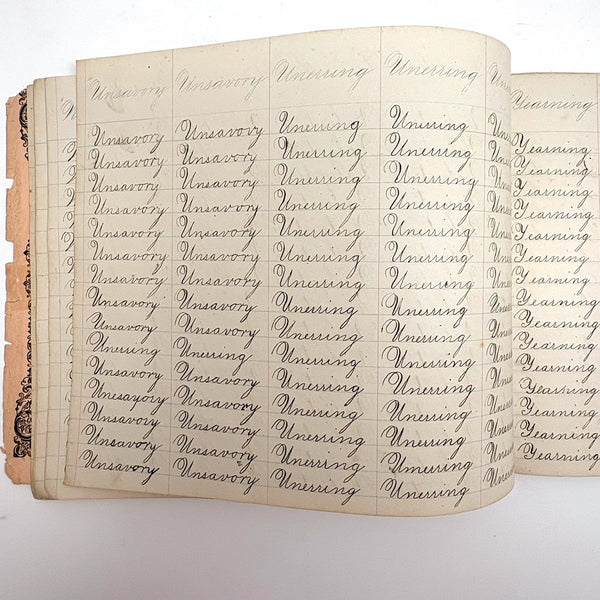 Unsavory Unsavory Unerring Unerring Yearning
Unsavory Unsavovy Unerring Unerring Yearning
Unsavory Unsavory Unerring Unerring Yearning
Unsavory Unsavory Unerring Unerring Yearning
Unsavory Unsavory Unerring Unerring Yearning
Unsavory Unsavory Unerring Unerring Yearning
Unsavory Unsavory Unerring Unerring Yearning
Unsavory Unsavory Unerring Unerring Yearning
Unsavory Unsavory Unerring Unerring Yearning
Unsavory Unsavory Unerring Unerring Yearning
Unerring Unerring Unerring Unerring Yearning
Unsavory Unsavory Unerring Unerring Yearning
Unesayory Unsavory Unerring Unerring Yearning
Unsavory Unsavory Unerring Unerring Yearning
Unsavory Unsavory Unerring Unerring Yearning
Unsavory Unsavory Unerring Unerring Yearning